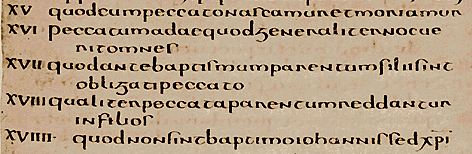 XV quodcumpeccatonascamuretmoriamur
XVI peccatumadaequodgeneraliternocue
ritomnes
XVII quodantebaptismumparentumfiliisint
obligatipeccato
XVIII qualiterpeccataparentumreddantur
infilios
XVIIII· quodnonsintbaptimoiohannissedxpi